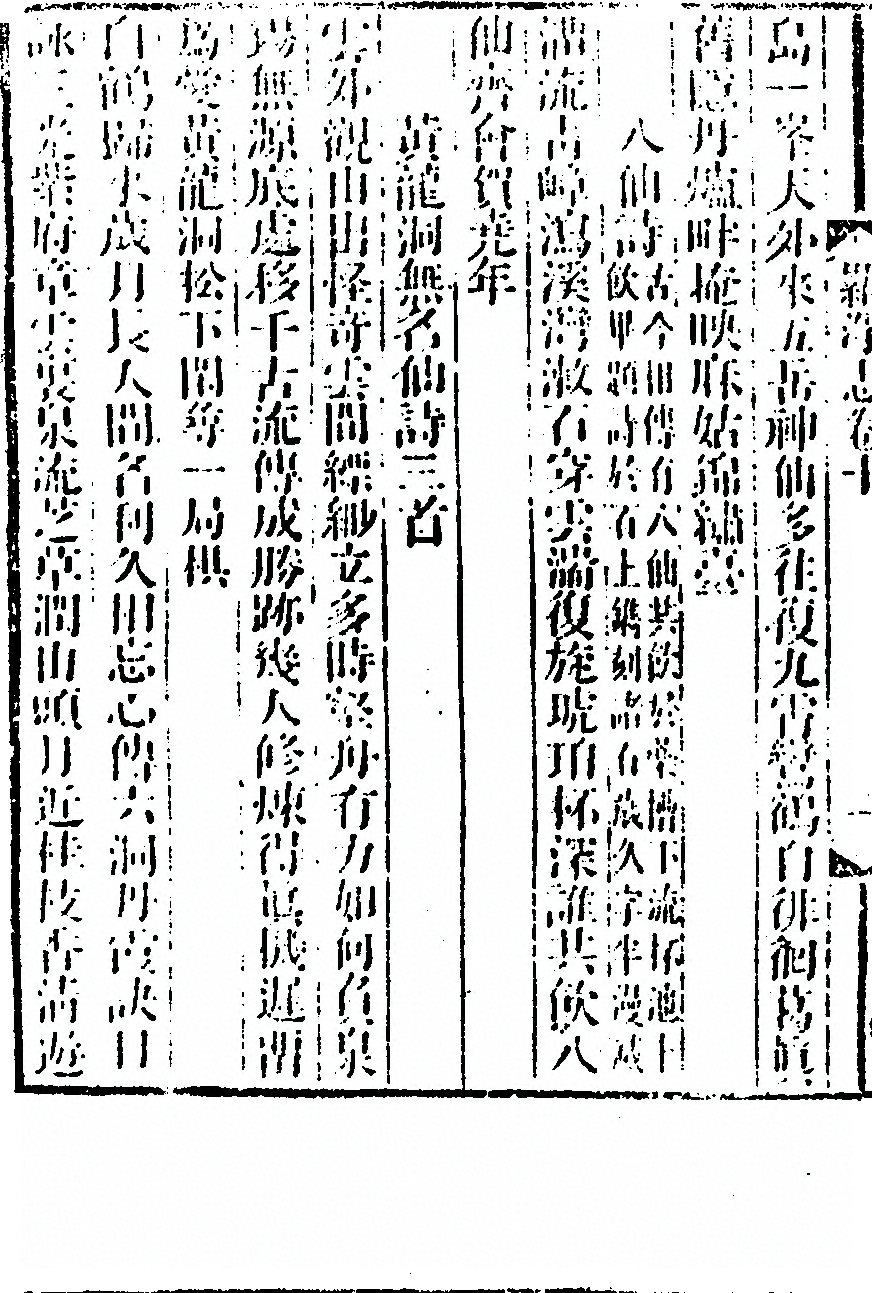 羅浮志卷十
島一峯天外來五岳神仙多往復九霄鸞鶴自徘徊葛眞
舊隱丹爐畔掩映麻姑錦繡堆
八仙詩古今相傳有八仙共飲於 下流杯池上
飲畢題詩於石上鐫刻諸石歲久字半漫滅
溜流古 瀉溪灣漱石穿雲湍復旋琥珀杯深誰共飲八
仙齊會賀堯年
黃龍洞無名仙詩三首
雲外觀山山怪奇雲間縹緲立多時壑舟有力如何負泉
瑒無源底處移千古流傳成勝跡幾人修煉得眞機迟畱
爲愛黃龍洞松下閒尋一局棋
白鶴歸來歲月長人間名利久相忘心傳大洞丹霞訣口
詠三光紫府章雲裏泉流芝草潤山頭月近桂枝香淸遊